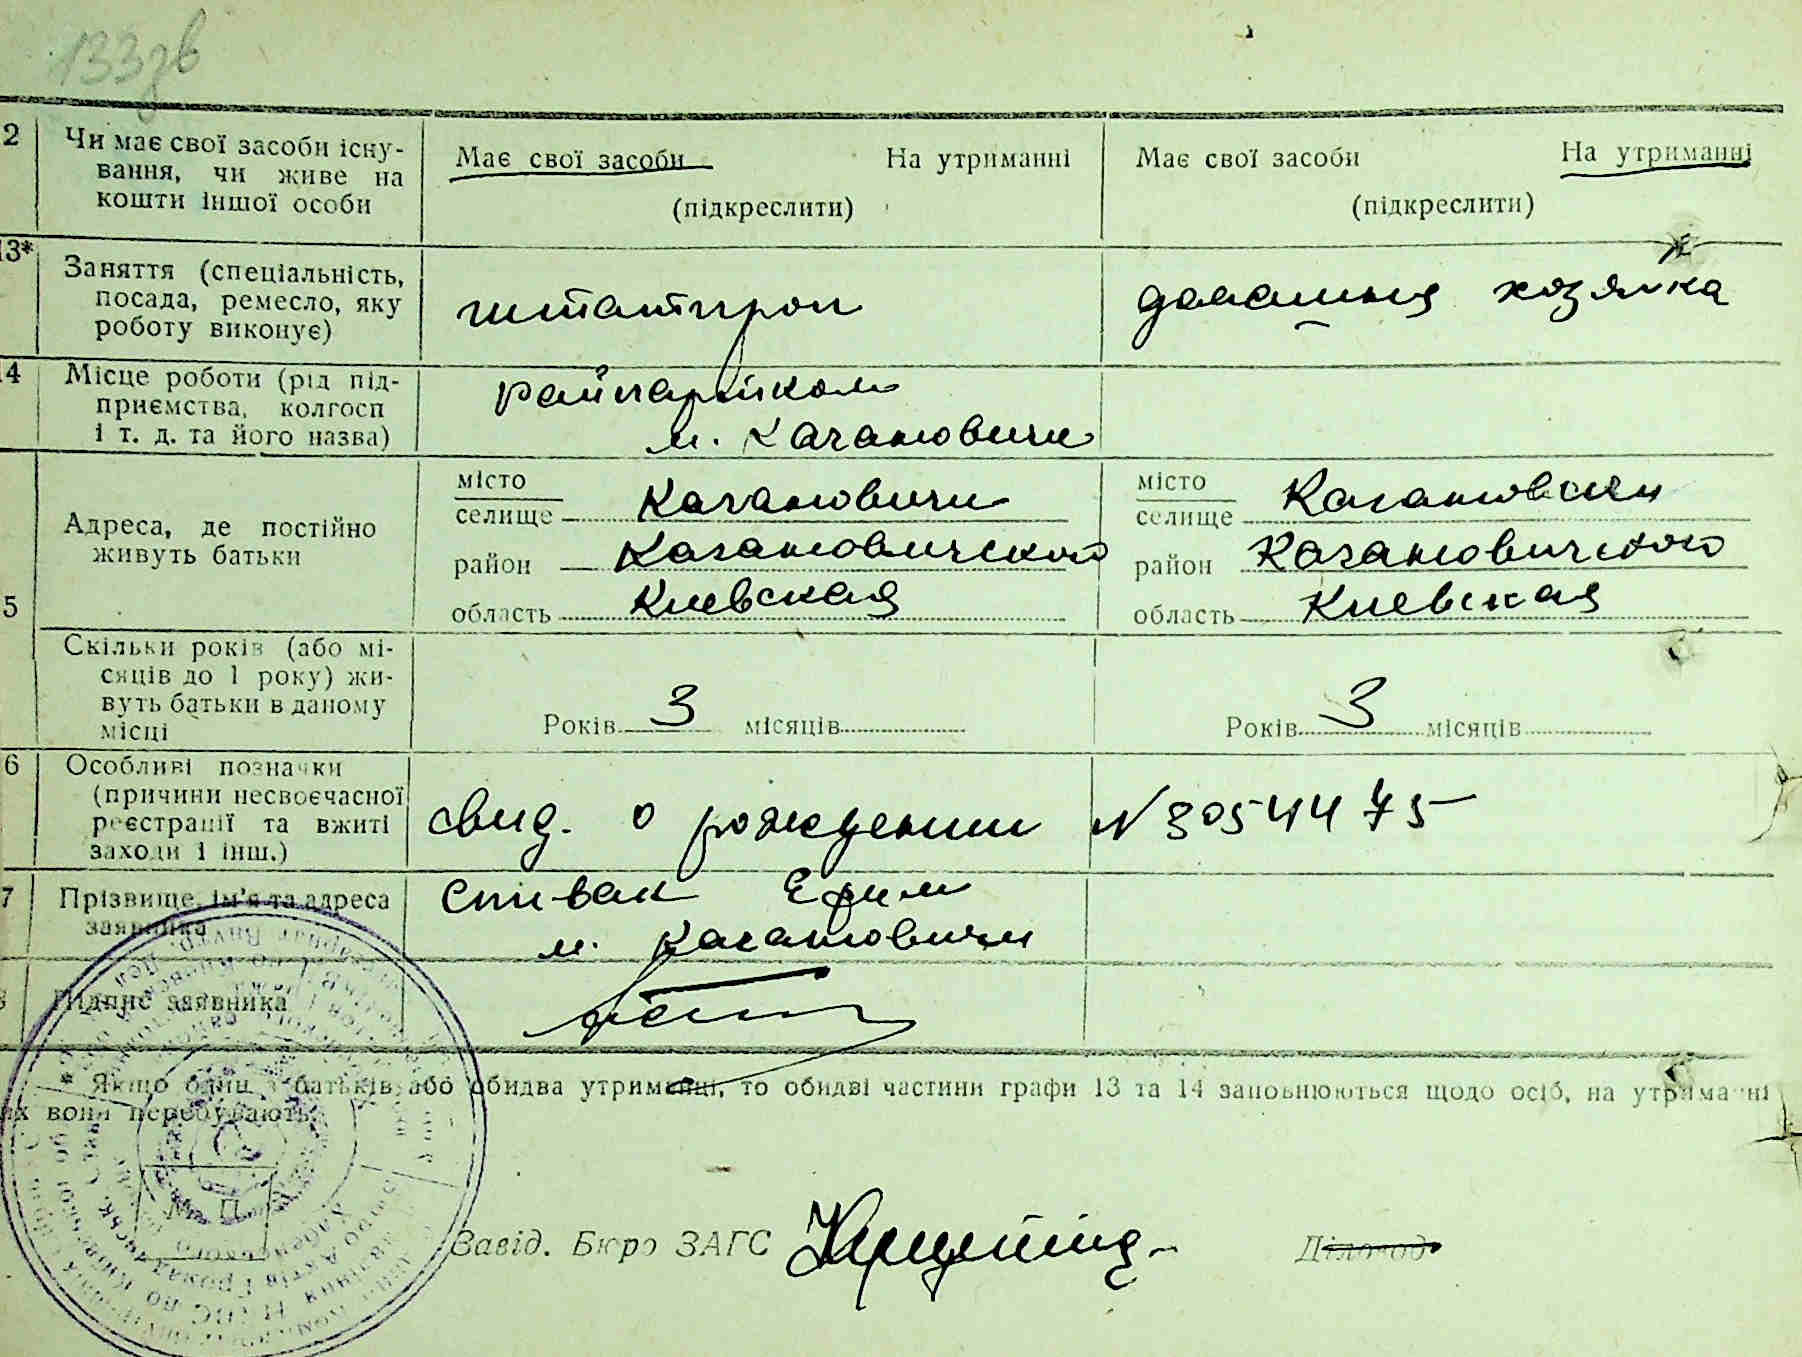 133зв
2 Чи має свої засоби існу-
вання, чи живе на
кошти іншої особи
Має свої засоби На утриманні
(підкреслити)
Має свої засоби На утриманні
(підкреслити)
13* Заняття (спеціальність,
посада, ремесло, яку
роботу виконує)
штатпроп
домашня хозяйка
14 Місце роботи (рід під-
приємства, колгосп
і т. д. та його назва)
райпарком
м. Кагановичи
5 Адреса, де постійно
живуть батьки
місто
селище Кагановичи
район Кагановичский
область Киевская
місто
селище Кагановичи
район Кагановичского
область Киевская
Скільки років (або мі-
сяців до 1 року) жи-
вуть батьки в даному
місці
Років 3 місяців
Років 3 місяців
6 Особливі позначки
(причини несвоєчасної
реєстрації та вжиті
заходи і інш.)
свид. о рождении N 3054475
7 Прізвище, ім'я та адреса
заявника
Спивак Ефим
м. Кагановичи
Підпис заявника
Якщо один з батьків або обидва утриманці, то обидві частини графи 13 та 14 заповнюються щодо осіб, на утриманні
их вони перебувають.
М. П.
Завід. Бюро ЗАГС
Діловод